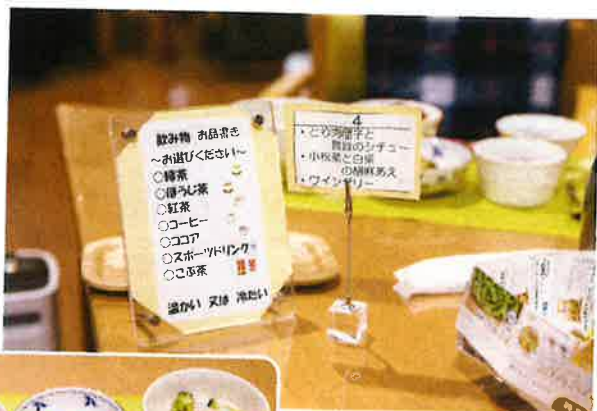 飲み物 お品書き
～お選びください～
○緑茶
○ほうじ茶
○紅茶
○コーヒー
○ココア
○スポーツドリンク
○こぶ茶
温かい 又は 冷たい
4
・小松菜と白菜
の胡麻あえ
・ワインゼリー